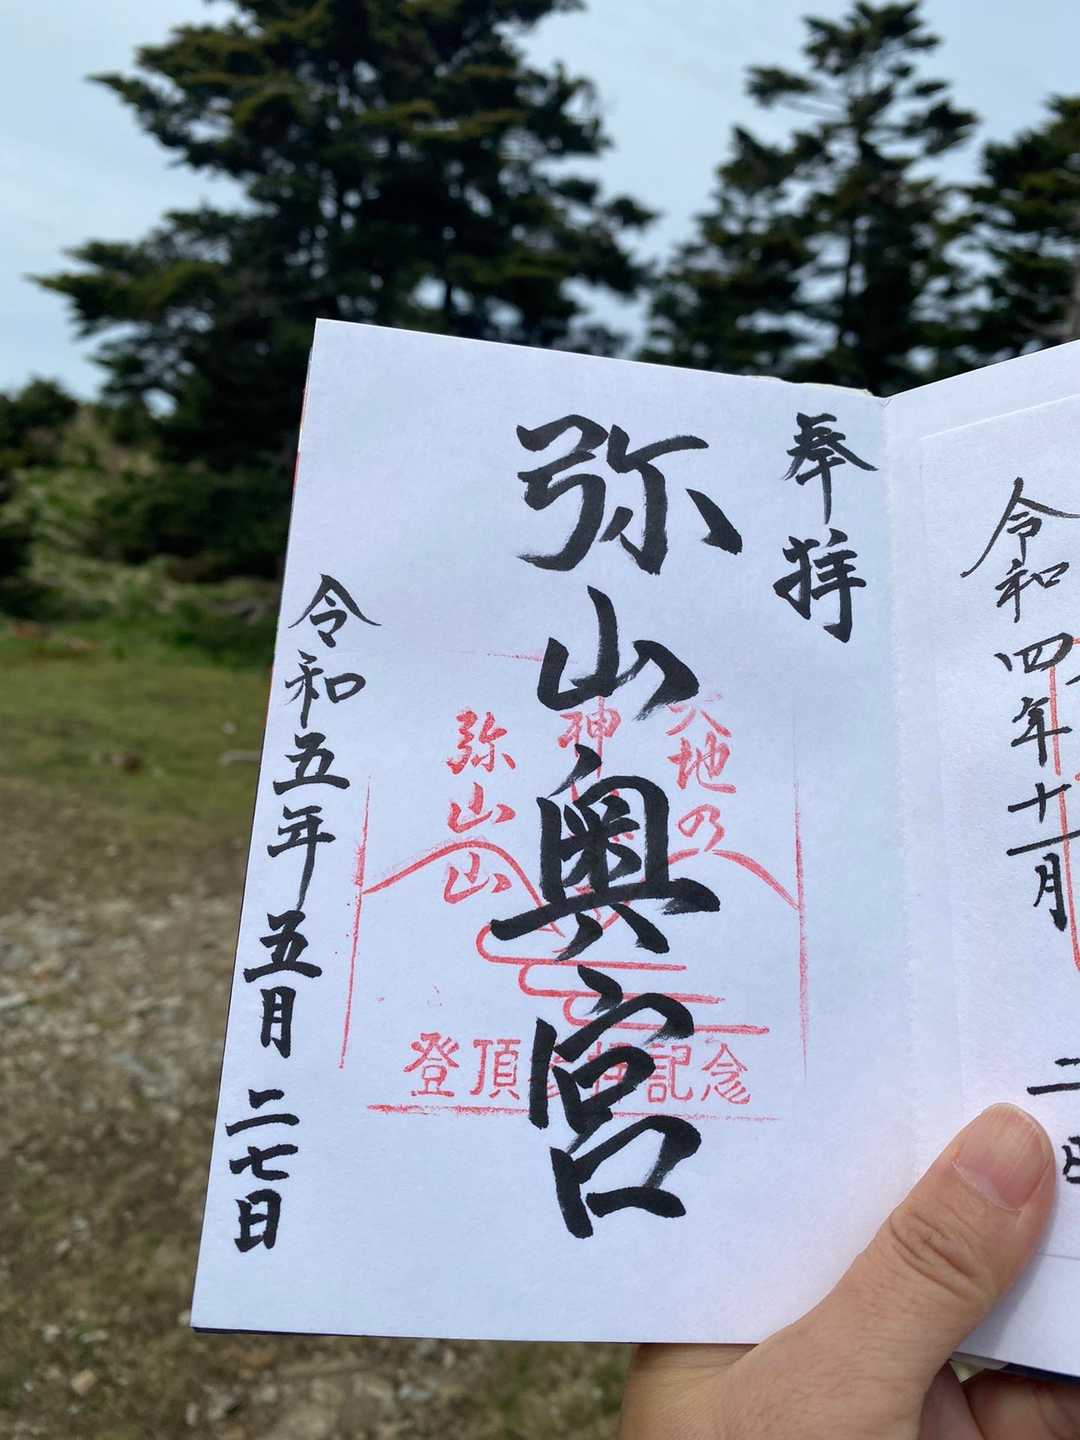 令和四年十一月
二
日
奉拝
弥山奥宮
天地乃
神
弥山山
登頂参拝記念
令和五年五月二七日